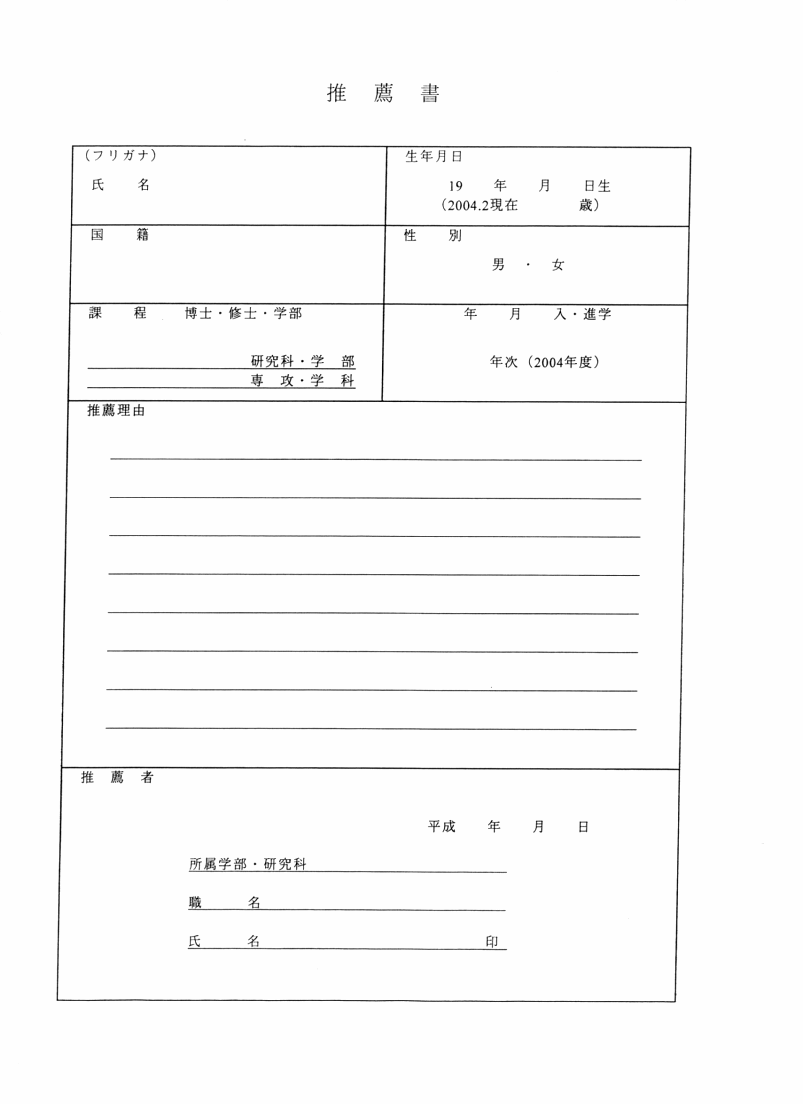 推 薦 書
(フリガナ)
氏 名
生年月日
19 年 月 日生
(2004.2現在 歳)
国 籍
性 別
男 ・ 女
課 程 博士・修士・学部
研究科・学 部
専 攻・学 科
年 月 入・進学
年次(2004年度)
推薦理由
推 薦 者
平成 年 月 日
所属学部・研究科
職 名
氏 名 印